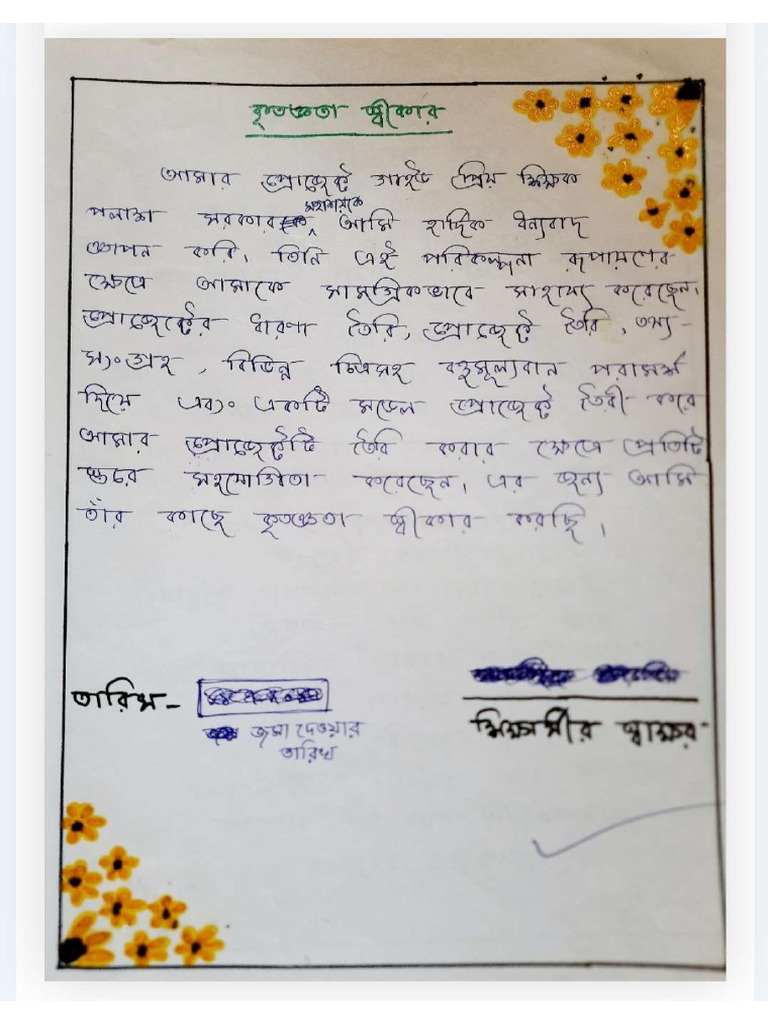 কৃতজ্ঞতা স্বীকার
আমার প্রোজেক্ট গাইড প্রিয় শিক্ষক
মহাশয়কে
পলাশ সরকার আমি হার্দিক ধন্যবাদ
জ্ঞাপন করি। তিনি এই পরিকল্পনা রূপায়ণের
ক্ষেত্রে আমাকে সামগ্রিকভাবে সাহায্য করেছেন।
প্রোজেক্টের ধারণা তৈরি, প্রোজেক্ট তৈরি, তথ্য-
সংগ্রহ, বিভিন্ন চিত্রসহ বহুমূল্যবান পরামর্শ
দিয়ে এবং একটি মডেল প্রোজেক্ট তৈরী করে
আমার প্রোজেক্টটি তৈরি করার ক্ষেত্রে প্রতিটি
স্তরে সহযোগিতা করেছেন। এর জন্য আমি
তাঁর কাছে কৃতজ্ঞতা স্বীকার করছি।
তারিখ-
জমা দেওয়ার
তারিখ
শিক্ষার্থীর স্বাক্ষর-